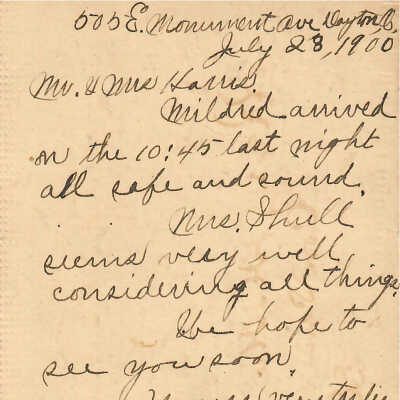 505 E. Monument Ave Dayton, O.
July 23, 1900
Mr. & Mrs Harris
Mildred arrived
on the 10:45 last night
all safe and sound.
Mrs. Shull
seems very well
considering all things.
We hope to
see you soon.